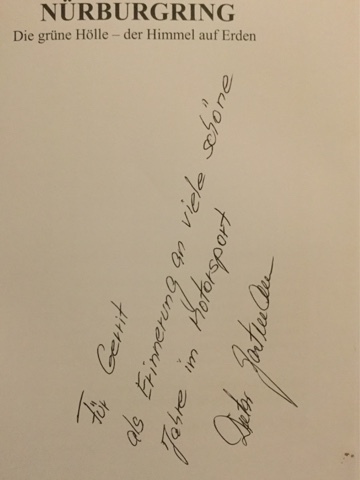 NÜRBURGRING
Die grüne Hölle – der Himmel auf Erden
Für Gerrit
als Erinnerung an viele schöne
Jahre im Motorsport
Dieter